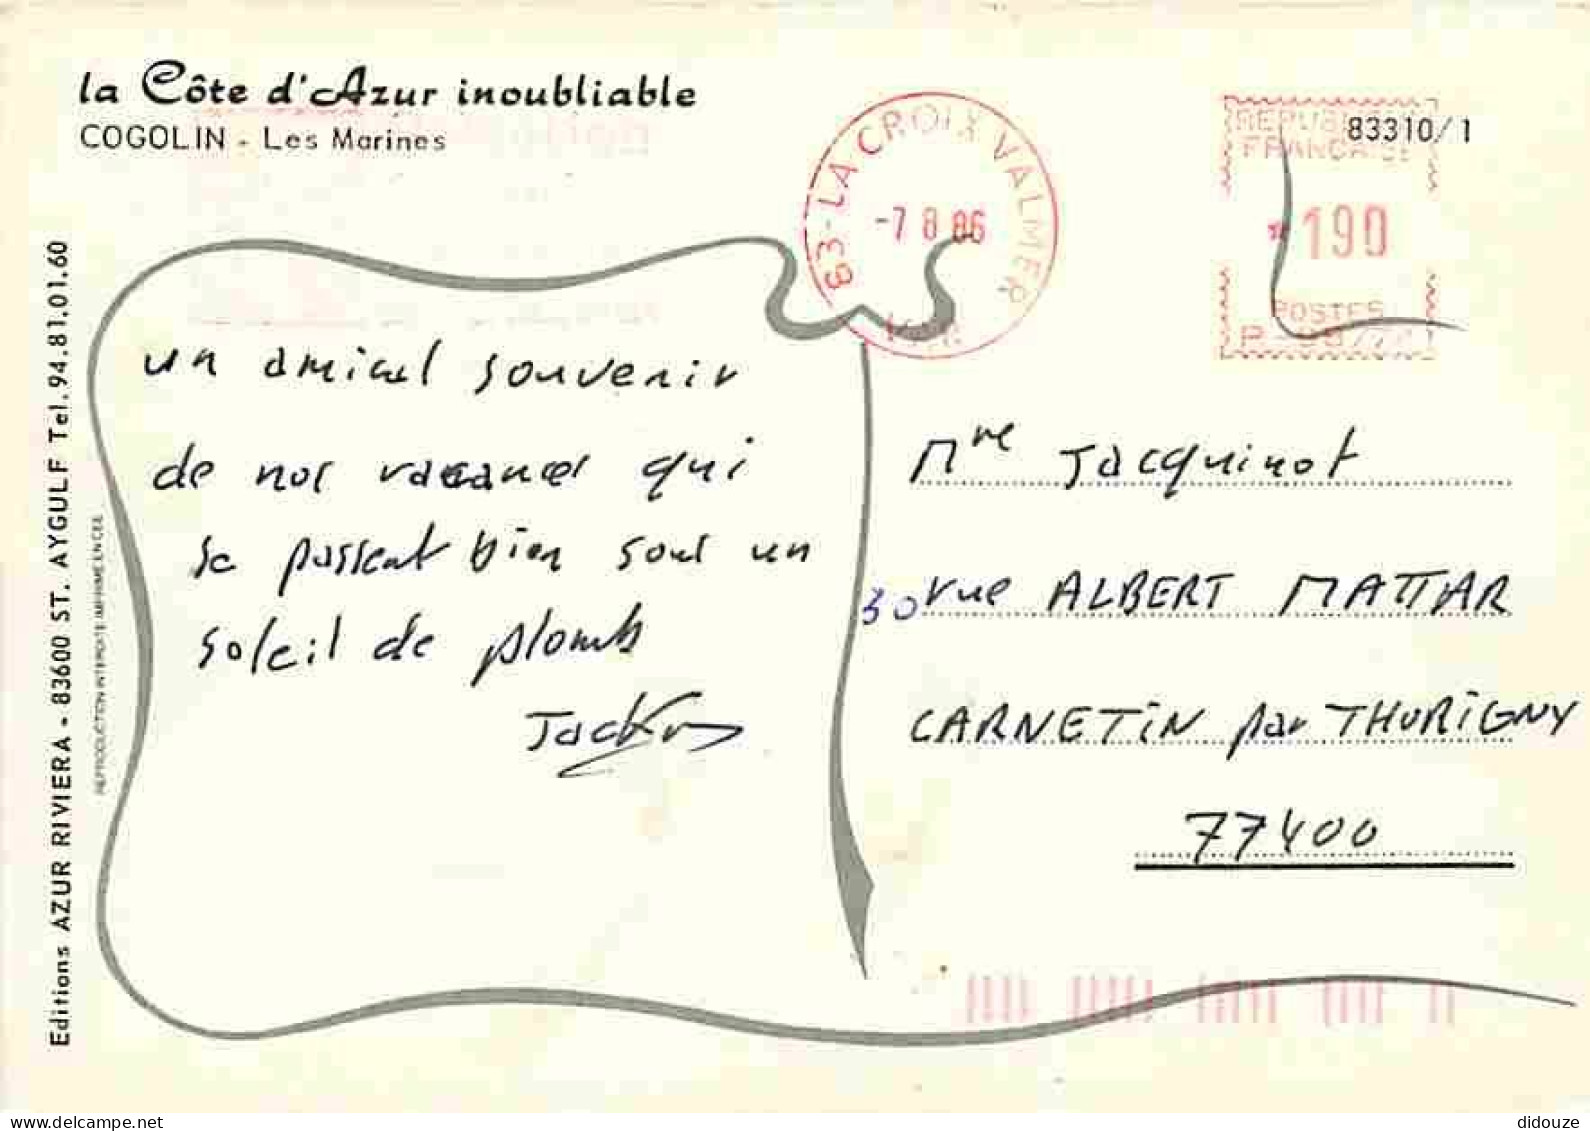 la Côte d'Azur inoubliable
COGOLIN - Les Marines
83 - LA CROIX VALMER
-7 8 86
REPUBLIQUE
FRANCAISE
83310/1
190
POSTES
un amical souvenir
de nos vacances qui
se passent bien sous un
soleil de plomb
Mme Jacquinot
30 rue ALBERT MATTAR
CARNETIN par THORIGNY
77400
Editions AZUR RIVIERA - 83600 ST. AYGULF Tel. 94.81.01.60
REPRODUCTION INTERDITE IMPRIME EN CEE
delcampe.net
didouze